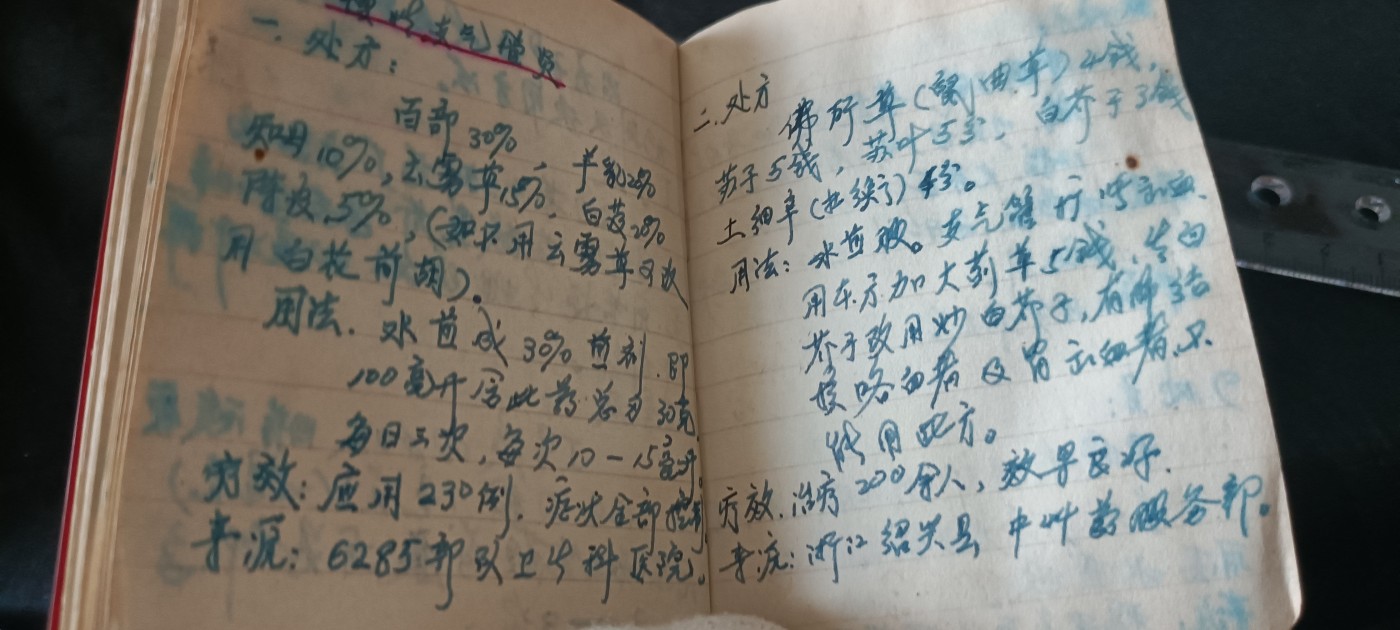 慢性支气管炎
一、处方:
百部30%
知母10%,云雾草15%,羊乳20%
陈皮5%,(如不用云雾草可改
用白花前胡)。
用法、水煎成30%煎剂、即
100毫升含此药总为30克.
每日三次,每次10-15毫升。
疗效:应用230例、症状全部控制
来源:6285部队卫生科医院。
二、处方
佛耳草(鼠曲草)4钱,
苏子5钱,苏叶5分,白芥子3钱
土细辛(杜衡)分。
用法:水煎服。支气管扩
用本方加大蓟草5钱,
芥子改用炒白芥子,有肺结
核咯血者及胃出血者只
用此方。
疗效、治疗200余人,效果良好.
来源:浙江绍兴县 药服务部。